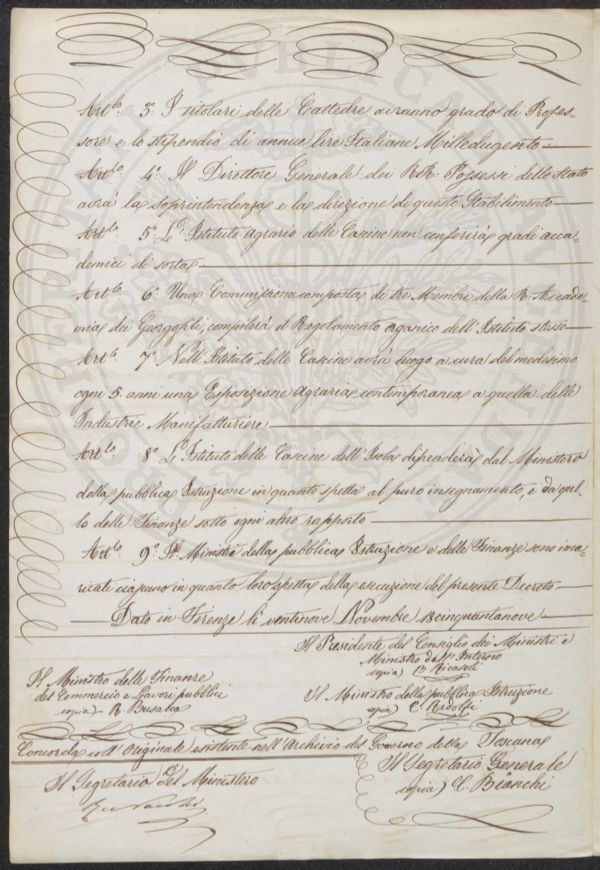 Art.lo 3.° I titolari delle Cattedre avranno grado di Profes-
sore e lo stipendio di annue lire Italiane Milledugento
Art.lo 4.° Il Direttore Generale dei RR. Possessi dello Stato
avrà la soprintendenza e la direzione di questo Stabilimento
Art.lo 5.° L'Istituto agrario delle Cascine non conferirà gradi acca-
demici di sorta
Art.lo 6.° Una Commissione composta di tre Membri della R. Accade-
mia dei Georgofili, compilerà il Regolamento organico dell'Istituto stesso
Art.lo 7.° Nell'Istituto delle Cascine avrà luogo a cura del medesimo
ogni 5 anni una Esposizione Agraria contemporanea a quella delle
Industrie Manifatturiere
Art.lo 8.° L'Istituto delle Cascine dell'Isola dipenderà dal Ministero
della pubblica Istruzione in quanto spetta al puro insegnamento, e da quel-
lo delle Finanze sotto ogni altro rapporto
Art.lo 9.° I Ministri della pubblica Istruzione e delle Finanze sono inca-
ricati ciascuno in quanto loro spetta della esecuzione del presente Decreto
Dato in Firenze li ventinove Novembre 18cinquantanove
Il Presidente del Consiglio dei Ministri e
Ministro dell'Interno
copia) B. Ricasoli
Il Ministro delle Finanze
del Commercio e Lavori pubblici
copia) R. Busacca
Il Ministro della pubblica Istruzione
copia) C. Ridolfi
Concorda coll'Originale esistente nell'Archivio del Governo della Toscana
Il Segretario Generale
copia) C. Bianchi
Il Segretario del Ministero